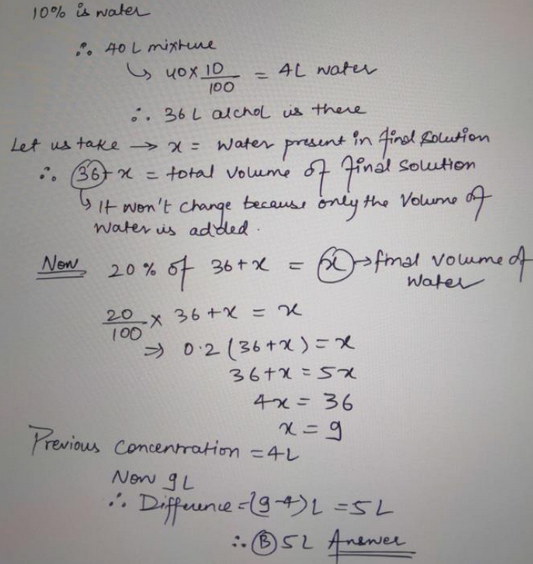 10% is water
∴ 40 L mixture
↳ 40 × 10/100 = 4L water
∴ 36 L alchol is there
Let us take → x = Water present in final solution
∴ 36 + x = total volume of final solution
↳ It won't change because only the Volume of
Water is added.
Now 20% of 36+x = x → final volume of
Water
20/100 × 36+x = x
⇒ 0.2 (36+x) = x
36+x = 5x
4x = 36
x = 9
Previous Concentration = 4L
Now 9L
∴ Difference = (9-4) L = 5L
∴ Ⓑ 5L Answer